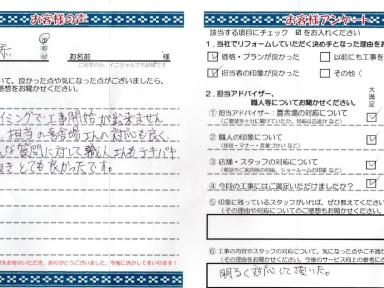 お客様の声
お名前
様
ご名字のみ、イニシャルでも結構です
いて、良かった点や気になった点がございましたら、
感想をお聞かせください。
イミングで工事開始が出来ません
担当の喜舎場さんの対応も良く
な質問に対して、職人さんもテキパキ
とても良かったです。
ありがとうございました。今後に活かしてまいります！
お客様アンケート
該当する項目にチェック ☑ をお入れください
1. 当社でリフォームしていただく決め手となった理由をお
価格・プランが良かった
以前にも工事を
担当者の印象が良かった
その他（
2. 担当アドバイザー、
職人等についてお聞かせください。
大満足
① 担当アドバイザー：喜舎場の対応について
② 職人の印象について
（挨拶・マナー・言葉づかい、など）
③ 店舗・スタッフの対応について
④ 今回の工事にはご満足いただけましたか？
⑤ 印象に残っているスタッフがいれば、ぜひ教えてください
（その理由や対応の内容についてのご感想もお聞かせください
⑥ 工事の内容やスタッフの対応について、気になった点やご不満が
その理由をお聞かせください。今後のサービス向上の参考に
明るく対応して頂いた。